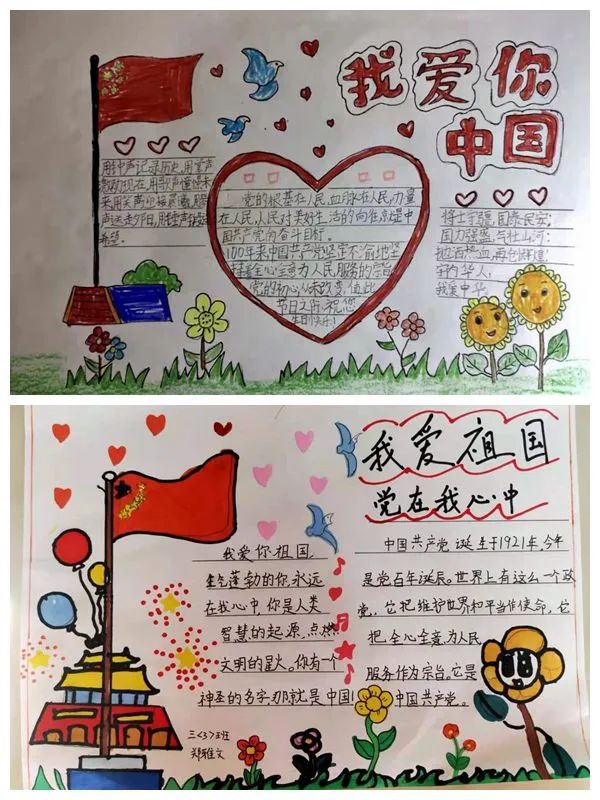 我爱你
中国
用钟声记录历史,用掌声
激励现在,用歌声憧憬未
来,用笑声迎接晨曦,
声送走夕阳,用
希望。
党的根基在人民,血脉在人民,力量
在人民,人民对美好生活的向往就是中
国共产党的奋斗目标。
100年来中国共产党坚定不渝地坚
持着全心全意为人民服务的宗旨
党的初心从未改变,值此
节日之际,祝您
生日快乐!
将士守疆,国泰民安;
国力强盛,气壮山河;
抛洒热血,再创辉煌!
我爱中华。
我爱祖国
党在我心中
我爱你祖国,
生气蓬勃的你,永远
在我心中,你是人类
智慧的起源,点燃
文明的星火。你有一个
神圣的名字,那就是中国!
三〈3〉班
郑雅文
中国共产党诞生于1921年,今年
是党百年诞辰。世界上有这么一个政
党,它把维护世界和平当作使命,它
把全心全意为人民
服务作为宗旨。它是
中国共产党。